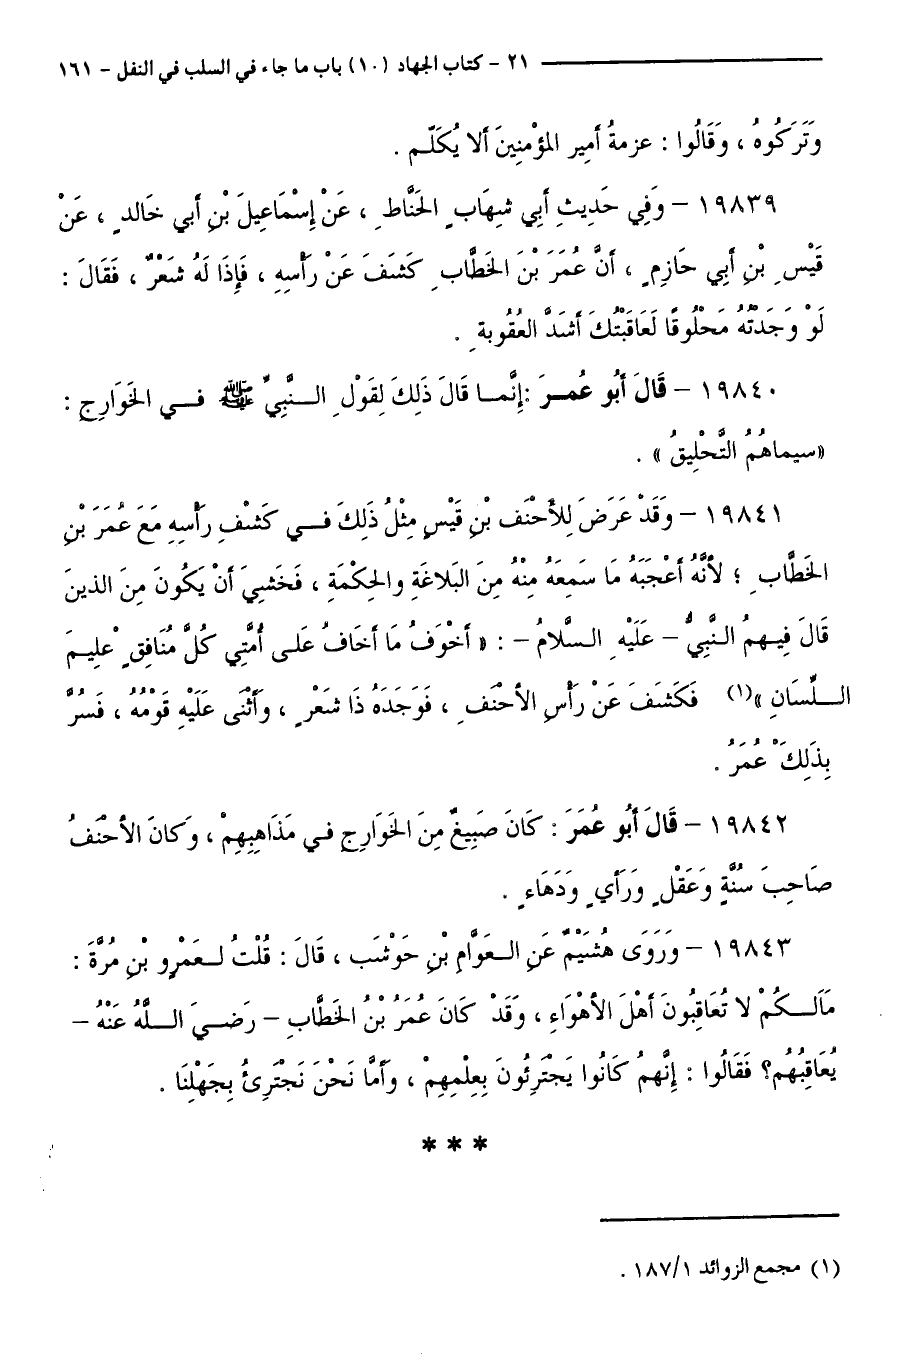 ٢١ - كتاب الجهاد (١٠) باب ما جاء في السلب في النفل - ١٦١
وَتَرَكُوهُ ، وَقَالُوا : عزمةُ أمِيرِ المؤْمنِينَ ألا يُكَلّم .
١٩٨٣٩ - وَفِي حَدِيثِ أبِي شِهَابٍ الحَنَّاطِ ، عَنْ إِسْمَاعِيلَ بْنِ أبي خَالدٍ ، عَنْ
قَيْسِ بْنِ أبِي حَازِمٍ ، أنَّ عُمَرَ بْنَ الخَطَّابِ كَشَفَ عَنْ رَأْسِهِ ، فَإِذَا لَهُ شَعْرٌ ، فَقَالَ :
لَوْ وَجَدْتُهُ مَحْلُوقًا لَعَاقَبْتُكَ أشَدَّ العُقُوبةِ .
١٩٨٤٠ - قَالَ أبُو عُمرَ : إِنَّما قَالَ ذَلِكَ لِقَوْلِ النَّبِيِّ ﷺ في الخَوَارِجِ :
«سيماهُمُ التَّحْلِيقُ » .
١٩٨٤١ - وَقَدْ عَرَضَ لِلأحْنَف بْنِ قَيْسٍ مِثْلُ ذَلِكَ في كَشْفِ رَأسِهِ مَعَ عُمَرَ بْنِ
الخَطَّابِ ؛ لأنَّهُ أعْجَبَهُ مَا سَمِعَهُ مِنْهُ مِنَ البَلاغَةِ والحِكْمَةِ ، فَخَشيَ أنْ يَكُونَ مِنَ الذينَ
قَالَ فِيهِمُ النَّبِيُّ - عَلَيْهِ السَّلامُ - : « أخْوَفُ مَا أخَافُ عَلى أُمَّتِي كُلَّ مُنَافِقٍ عْلِيمَ
اللِّسَانِ »(١) فَكَشَفَ عَنْ رَأسِ الأحْنَفِ ، فَوَجَدَهُ ذَا شَعْرٍ ، وأثْنَى عَلَيْهِ قَوْمُهُ ، فَسُرَّ
بِذَلِكَ عُمَرُ .
١٩٨٤٢ - قَالَ أبُو عُمَرَ : كَانَ صَبِيغٌ مِنَ الخَوَارِجِ في مَذَاهِبِهِمْ ، وَكَانَ الأحْنَفُ
صَاحِبَ سُنَّةٍ وَعَقْلٍ وَرَأيٍ وَدَهَاءٍ .
١٩٨٤٣ - وَرَوَى هُشَيْمٌ عَنِ العَوَّامِ بْنِ حَوْشَب ، قَالَ : قُلْتُ لعَمْرِو بْنِ مُرَّةَ :
مَالَكُمْ لا تُعَاقِبُونَ أهْلَ الأهْوَاءِ ، وَقَدْ كَانَ عُمَرُ بْنُ الخَطَّابِ - رَضيَ اللَّهُ عَنْهُ -
يُعَاقِبُهُم؟ فَقَالُوا : إِنَّهمُ كَانُوا يَجْتَرِئُونَ بِعِلْمِهِمْ ، وَأمَّا نَحْنَ نَجْتَرِئُ بِجَهْلِنَا .
* * *
(١) مجمع الزوائد ١/ ١٨٧ .